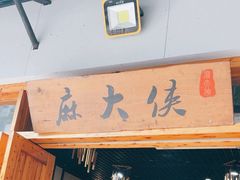 麻大侠